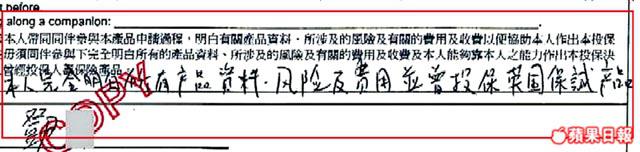 t before
along a companion:
本人帶同同伴參與本產品申請過程，明白有關產品資料、所涉及的風險及有關的費用及收費以便協助本人作出本投保
毋須同伴參與下完全明白所有的產品資料、所涉及的風險及有關的費用及收費及本人能夠靠本人之能力作出本投保決
曾經投保人壽保險產品
本人完全明白所有产品資料，风险及費用並曾投保英国保誠产品
COPY
蘋果日報